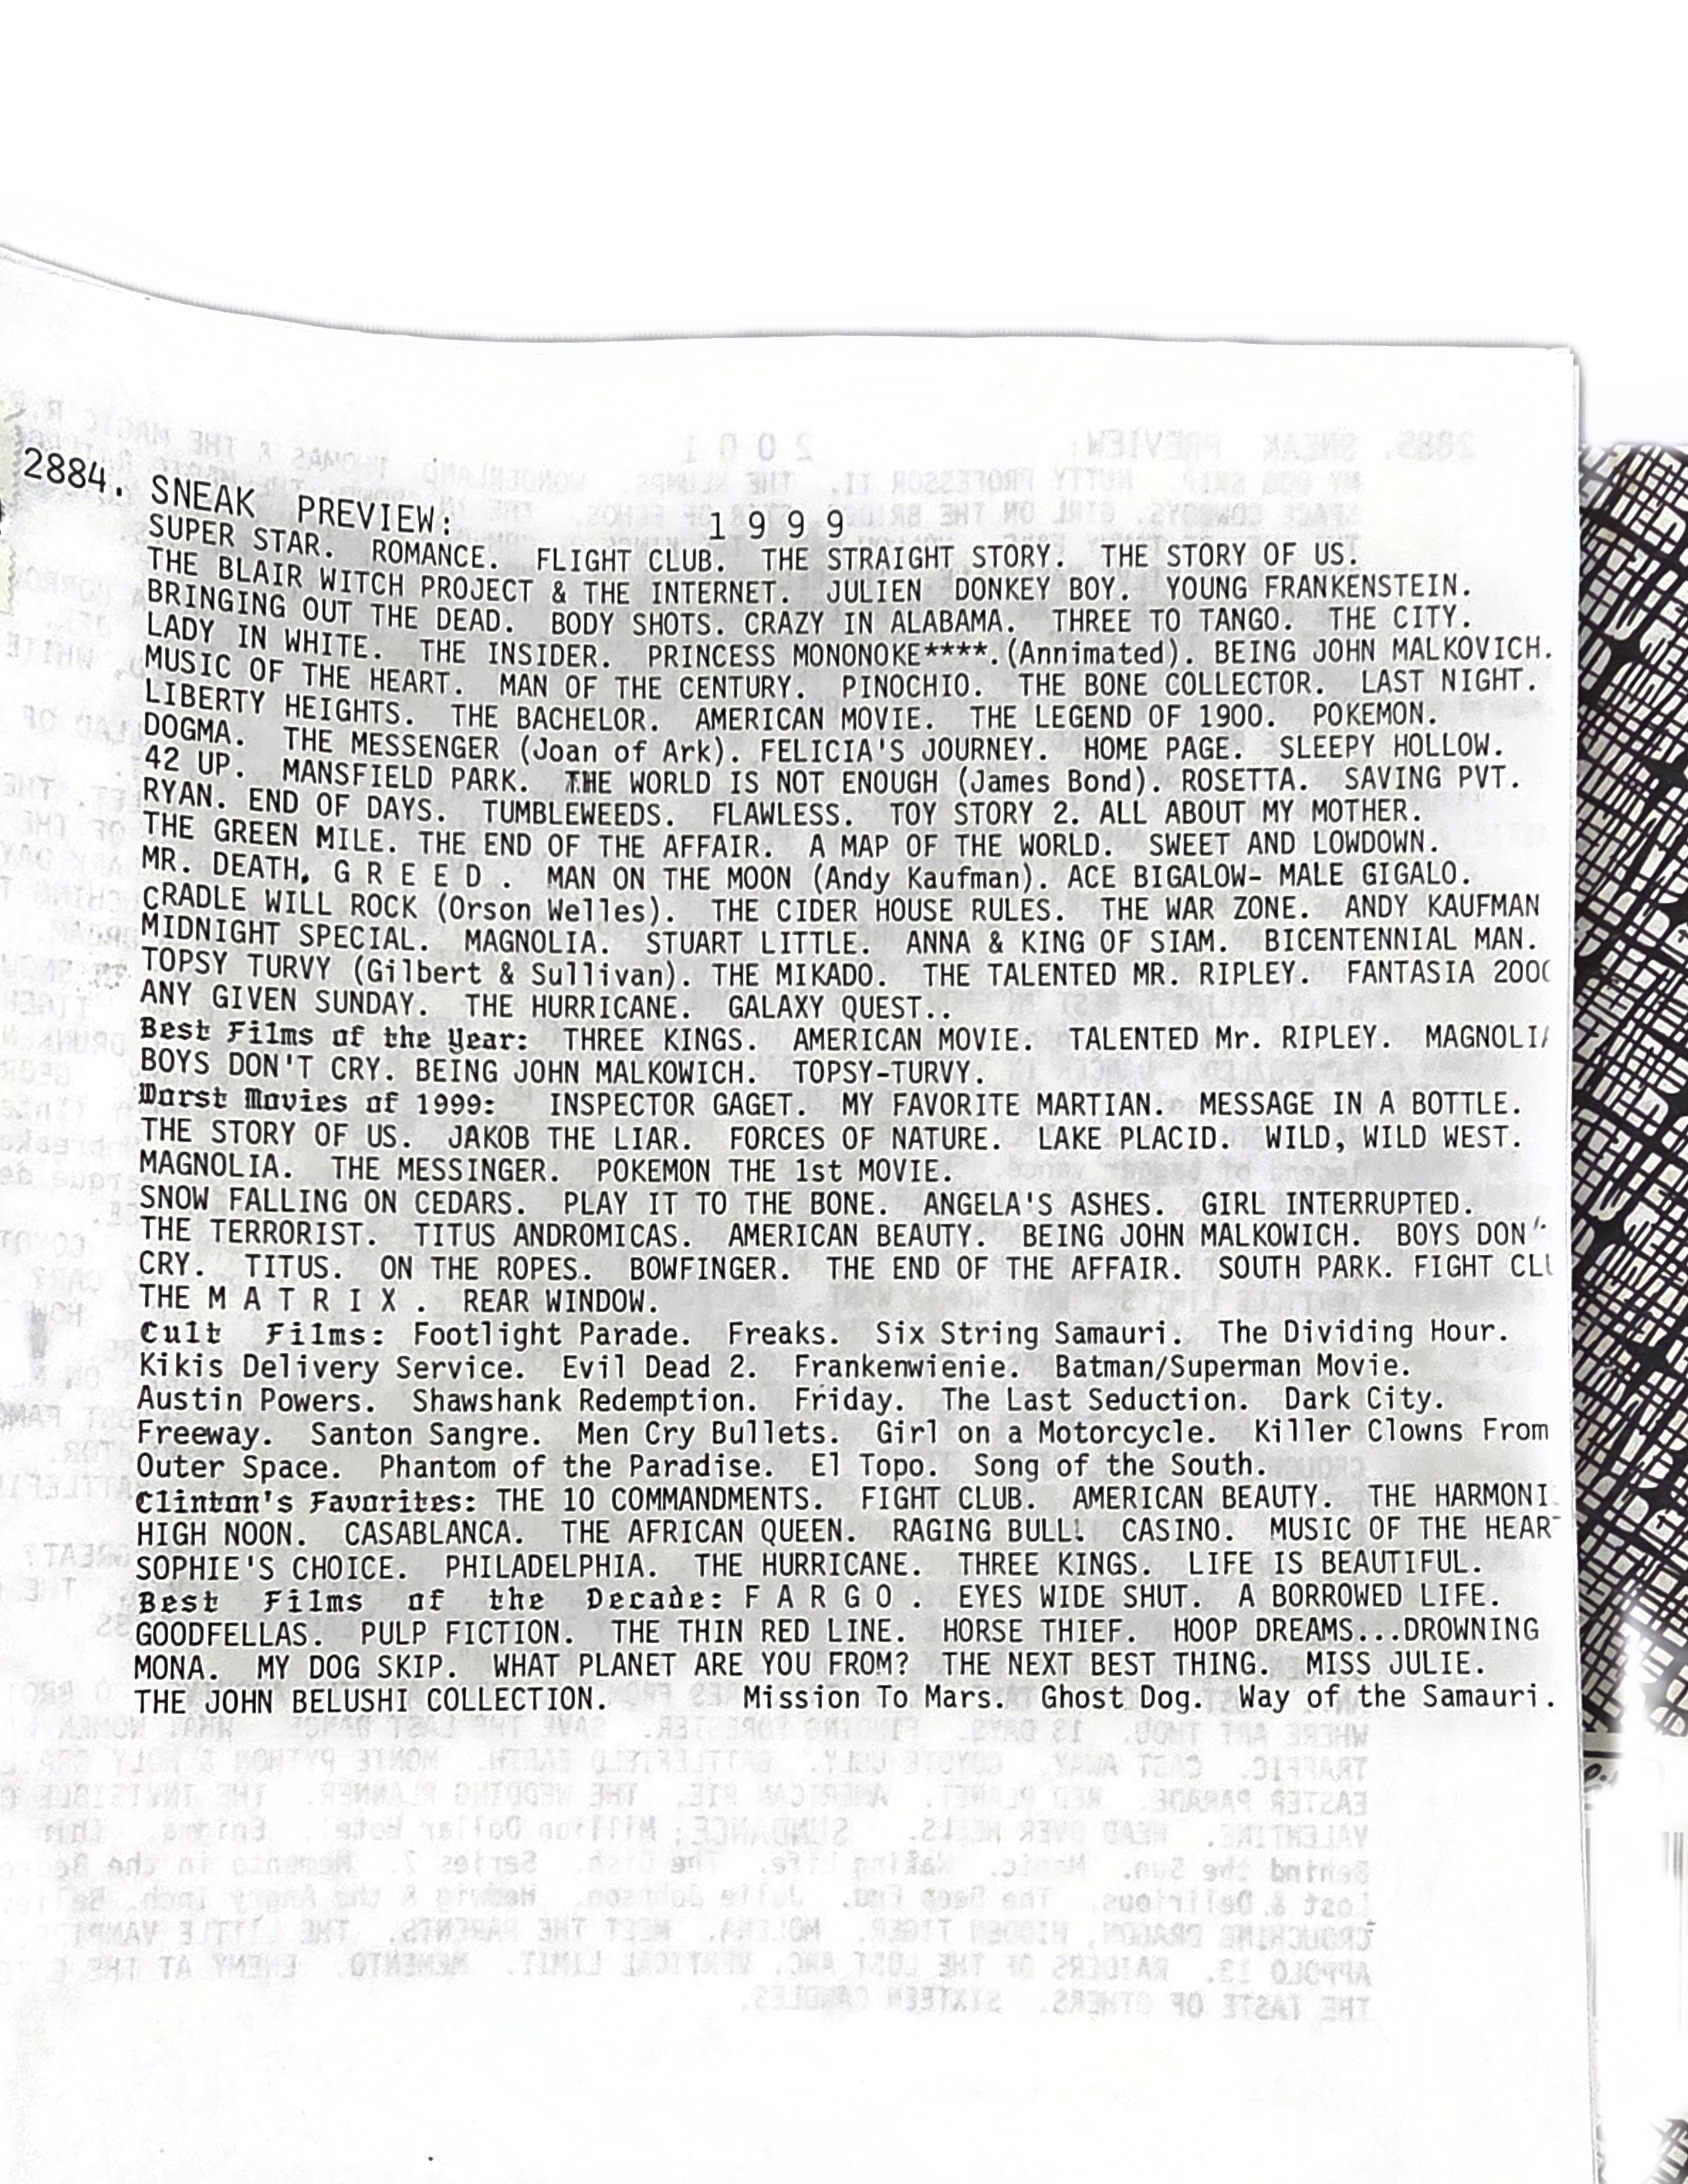 2884. SNEAK PREVIEW: 1 9 9 9
SUPER STAR. ROMANCE. FLIGHT CLUB. THE STRAIGHT STORY. THE STORY OF US.
THE BLAIR WITCH PROJECT & THE INTERNET. JULIEN DONKEY BOY. YOUNG FRANKENSTEIN.
BRINGING OUT THE DEAD. BODY SHOTS. CRAZY IN ALABAMA. THREE TO TANGO. THE CITY.
LADY IN WHITE. THE INSIDER. PRINCESS MONONOKE****.(Annimated). BEING JOHN MALKOVICH.
MUSIC OF THE HEART. MAN OF THE CENTURY. PINOCHIO. THE BONE COLLECTOR. LAST NIGHT.
LIBERTY HEIGHTS. THE BACHELOR. AMERICAN MOVIE. THE LEGEND OF 1900. POKEMON.
DOGMA. THE MESSENGER (Joan of Ark). FELICIA'S JOURNEY. HOME PAGE. SLEEPY HOLLOW.
42 UP. MANSFIELD PARK. THE WORLD IS NOT ENOUGH (James Bond). ROSETTA. SAVING PVT.
RYAN. END OF DAYS. TUMBLEWEEDS. FLAWLESS. TOY STORY 2. ALL ABOUT MY MOTHER.
THE GREEN MILE. THE END OF THE AFFAIR. A MAP OF THE WORLD. SWEET AND LOWDOWN.
MR. DEATH, G R E E D . MAN ON THE MOON (Andy Kaufman). ACE BIGALOW- MALE GIGALO.
CRADLE WILL ROCK (Orson Welles). THE CIDER HOUSE RULES. THE WAR ZONE. ANDY KAUFMAN
MIDNIGHT SPECIAL. MAGNOLIA. STUART LITTLE. ANNA & KING OF SIAM. BICENTENNIAL MAN.
TOPSY TURVY (Gilbert & Sullivan). THE MIKADO. THE TALENTED MR. RIPLEY. FANTASIA 200
ANY GIVEN SUNDAY. THE HURRICANE. GALAXY QUEST..
Best Films of the Year: THREE KINGS. AMERICAN MOVIE. TALENTED Mr. RIPLEY. MAGNOLI
BOYS DON'T CRY. BEING JOHN MALKOWICH. TOPSY-TURVY.
Worst Movies of 1999: INSPECTOR GAGET. MY FAVORITE MARTIAN. MESSAGE IN A BOTTLE.
THE STORY OF US. JAKOB THE LIAR. FORCES OF NATURE. LAKE PLACID. WILD, WILD WEST.
MAGNOLIA. THE MESSINGER. POKEMON THE 1st MOVIE.
SNOW FALLING ON CEDARS. PLAY IT TO THE BONE. ANGELA'S ASHES. GIRL INTERRUPTED.
THE TERRORIST. TITUS ANDROMICAS. AMERICAN BEAUTY. BEING JOHN MALKOWICH. BOYS DON'
CRY. TITUS. ON THE ROPES. BOWFINGER. THE END OF THE AFFAIR. SOUTH PARK. FIGHT CL
THE M A T R I X . REAR WINDOW.
Cult Films: Footlight Parade. Freaks. Six String Samauri. The Dividing Hour.
Kikis Delivery Service. Evil Dead 2. Frankenwienie. Batman/Superman Movie.
Austin Powers. Shawshank Redemption. Friday. The Last Seduction. Dark City.
Freeway. Santon Sangre. Men Cry Bullets. Girl on a Motorcycle. Killer Clowns From
Outer Space. Phantom of the Paradise. El Topo. Song of the South.
Clinton's Favorites: THE 10 COMMANDMENTS. FIGHT CLUB. AMERICAN BEAUTY. THE HARMONI
HIGH NOON. CASABLANCA. THE AFRICAN QUEEN. RAGING BULL. CASINO. MUSIC OF THE HEAR
SOPHIE'S CHOICE. PHILADELPHIA. THE HURRICANE. THREE KINGS. LIFE IS BEAUTIFUL.
Best Films of the Decade: F A R G O . EYES WIDE SHUT. A BORROWED LIFE.
GOODFELLAS. PULP FICTION. THE THIN RED LINE. HORSE THIEF. HOOP DREAMS...DROWNING
MONA. MY DOG SKIP. WHAT PLANET ARE YOU FROM? THE NEXT BEST THING. MISS JULIE.
THE JOHN BELUSHI COLLECTION. Mission To Mars. Ghost Dog. Way of the Samauri.